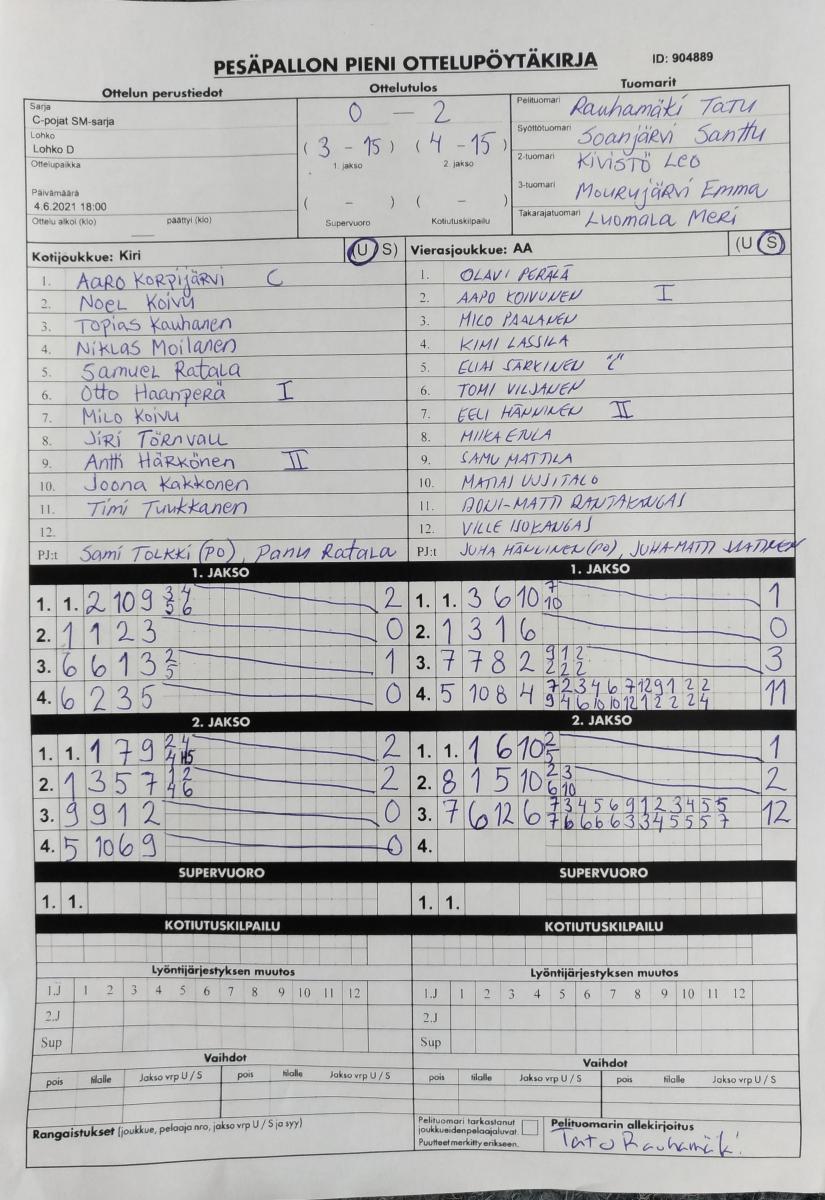 PESÄPALLON PIENI OTTELUPÖYTÄKIRJA
ID: 904889
Ottelun perustiedot
Sarja
C-pojat SM-sarja
Lohko
Lohko D
Ottelupaikka
Päivämäärä
4.6.2021 18:00
Ottelu alkoi (klo) päättyi (klo)
Ottelutulos
0 — 2
( 3 - 15 ) ( 4 - 15 )
1. jakso 2. jakso
( - ) ( - )
Supervuoro Kotiutuskilpailu
Tuomarit
Pelituomari Rauhamäki Tatu
Syöttötuomari Soanjärvi Santtu
2-tuomari Kivistö Leo
3-tuomari Mourujärvi Emma
Takarajatuomari Luomala Meri
Kotijoukkue: Kiri (U S)
1. Aaro Korpijärvi C
2. Noel Koivu
3. Topias Kauhanen
4. Niklas Moilanen
5. Samuel Ratala
6. Otto Haanperä I
7. Milo Koivu
8. Jiri Törnvall
9. Antti Härkönen II
10. Joona Kakkonen
11. Timi Tuukkanen
12.
PJ:t Sami Tolkki (PO), Panu Ratala
Vierasjoukkue: AA (U S)
1. OLAVI PERÄLÄ
2. AAPO KOIVUNEN I
3. MILO PAALANEN
4. KIMI LASSILA
5. ELIAS SÄRKINEN "C"
6. TOMI VILJANEN
7. EELI HÄNNINEN II
8. MIIKA ETULA
9. SAMU MATTILA
10. MATIAS UUSITALO
11. JONI-MATTI RANTAKANGAS
12. VILLE ISOKANGAS
PJ:t JUHA HÄNNINEN (PO), JUHA-MATTI
1. JAKSO
1. 1. 2 10 9 3 4 2
5 6
2. 1 1 2 3 0
3. 6 6 1 3 2 1
5
4. 6 2 3 5 0
2. JAKSO
1. 1. 1 7 9 2 4 2
4 H5
2. 1 3 5 7 1 2 2
4 6
3. 9 9 1 2 0
4. 5 10 6 9 0
SUPERVUORO
1. 1.
KOTIUTUSKILPAILU
Lyöntijärjestyksen muutos
1.J 1 2 3 4 5 6 7 8 9 10 11 12
2.J
Sup
Vaihdot
pois tilalle Jakso vrp U / S pois tilalle Jakso vrp U / S
Rangaistukset (joukkue, pelaaja nro, jakso vrp U / S ja syy)
1. JAKSO
1. 1. 3 6 10 7 1
10
2. 1 3 1 6 0
3. 7 7 8 2 9 1 2 3
2 2 2
4. 5 10 8 4 7 2 3 4 6 7 12 9 1 2 2 11
9 4 6 10 10 12 1 2 2 2 4
2. JAKSO
1. 1. 1 6 10 2 1
5
2. 8 1 5 10 2 3 2
6 10
3. 7 6 12 6 7 3 4 5 6 9 1 2 3 4 5 5 12
7 6 6 6 6 3 3 4 5 5 5 7
4.
SUPERVUORO
1. 1.
KOTIUTUSKILPAILU
Lyöntijärjestyksen muutos
1.J 1 2 3 4 5 6 7 8 9 10 11 12
2.J
Sup
Vaihdot
pois tilalle Jakso vrp U / S pois tilalle Jakso vrp U / S
Pelituomari tarkastanut
joukkueidenpelaajaluvat
Puutteet merkitty erikseen.
Pelituomarin allekirjoitus
Tatu Rauhamäki